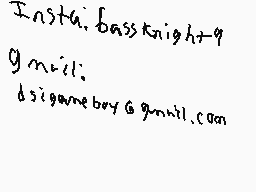 Insta: bassknight9
gmail:
dsigameboy@gmail.com